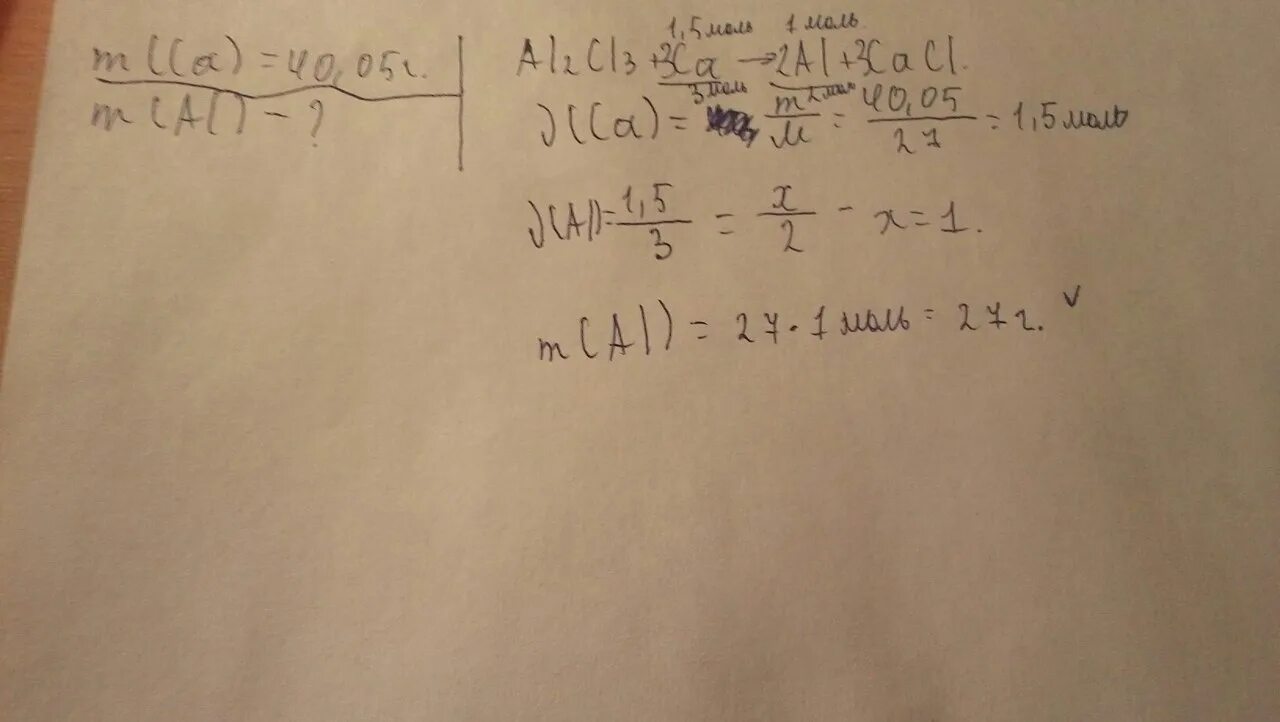 m(Ca) = 40,05г.
m(Al) - ?
1,5 моль 1 моль
Al₂Cl₃ + 3Ca → 2Al + 3CaCl.
3 моль 2 моль
ν(Ca) = m/M = 40,05/27 = 1,5 моль
ν(Al) = 1,5/3 = x/2 - x = 1.
m(Al) = 27 · 1 моль = 27 г. v